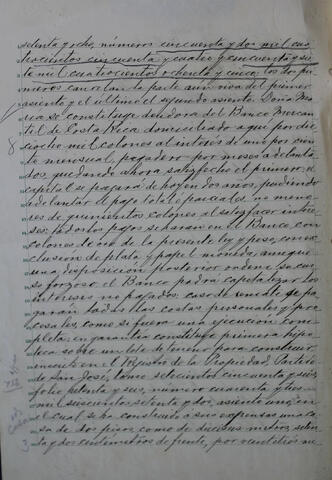 setenta y ocho, números cincuenta y dos mil cua
trocientos cincuenta y cuatro y cincuenta y sie
te mil cuatrocientos ochenta y cinco, los dos pri
meros cancelan la parte aún viva del primer
asiento y el último el segundo asiento. Doña Ma
se constituye deudora del Banco Mercan
til de Costa Rica domiciliado aquí por die
ciocho mil colones al interés de uno por cien
to mensual, pagadero por meses adelanta
dos, quedando ahora satisfecho el primero, el
capital se pagará de hoy en dos años, pudiendo
adelantar el pago total o parciales, no meno
res de quinientos colones al satisfacer intere
ses; todos los pagos se harán en el Banco con
colones de oro de la presente ley y peso, con ex
clusión de plata y papel moneda, aunque
una disposición posterior ordene su cur
so forzoso el Banco podrá capitalizar los
intereses no pagados; caso de remate se pa
garán todas las costas personales y pro
cesales, como si fuera una ejecución com
pleta; en garantía constituye primera hipo
teca sobre un lote de terreno para construir
inscrito en el Registro de la Propiedad, Partido
de San José, tomo seiscientos cincuenta y seis,
folio setenta y seis, número cuarenta y tres
mil seiscientos setenta y dos, asiento uno, en
el cual se ha construido a sus expensas una ca
sa de dos pisos, como de dieciseis metros, seten
ta y dos centímetros de frente, por veintitrés me